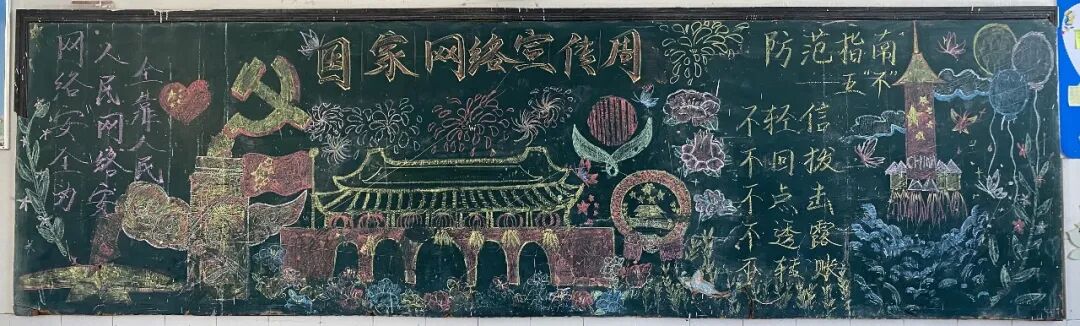 国家网络宣传周
网络安全为
人民网络安
全靠人民
防范指南
五"不"
不轻信
不回拨
不点击
不透露
不转账
CHINA